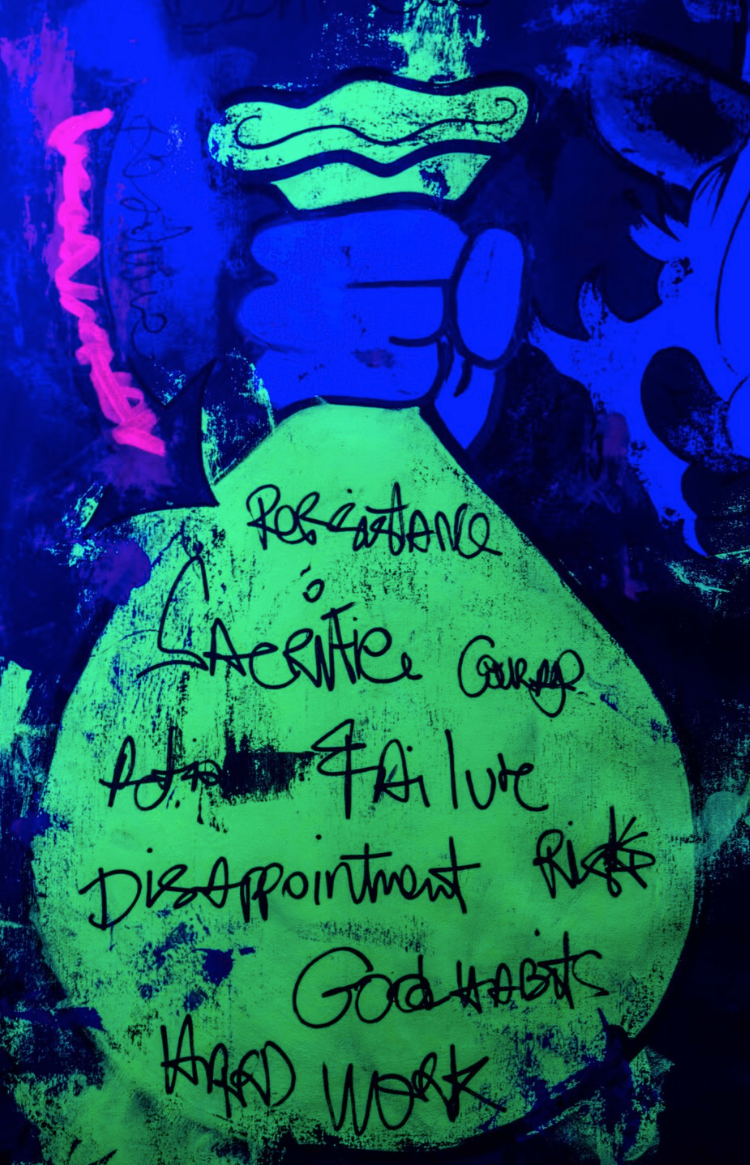 Resistance
Sacrifice Courage
Failure
DISAppointment RISKS
Good HABITS
HARD WORK